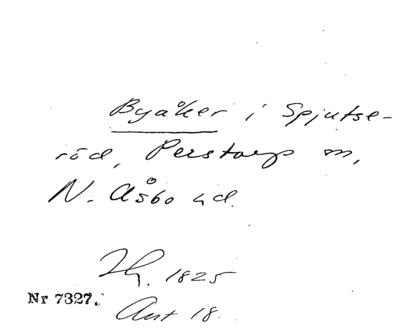 Byåker i Spjutse-
röd, Perstorp sn,
N. Åsbo hd.
1825
Nr 7327.
Akt 18.